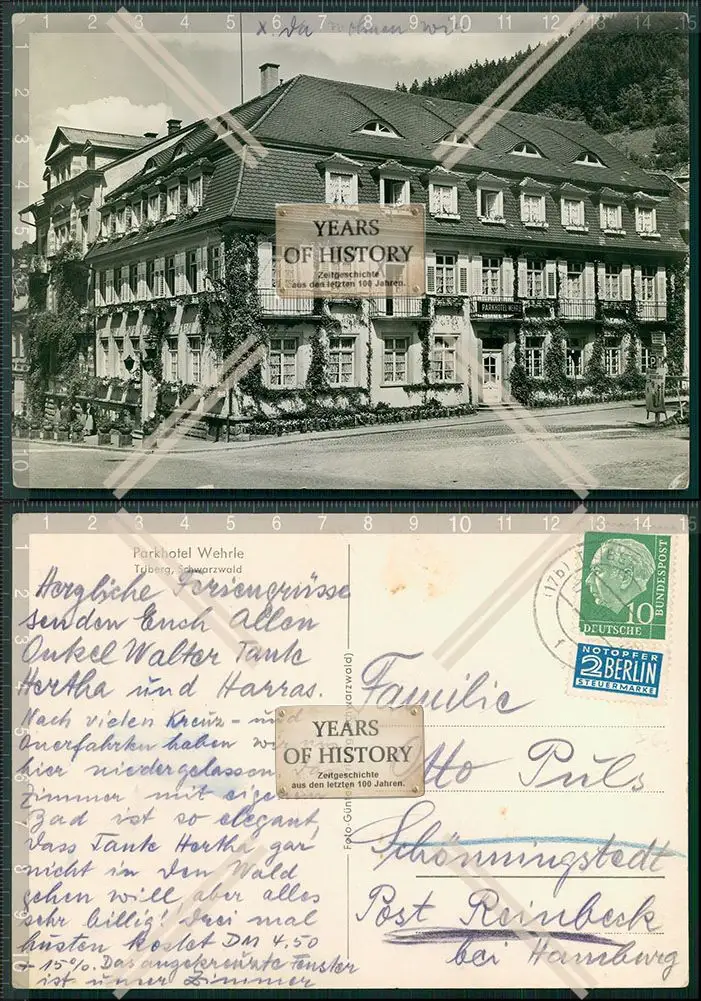 x. da wohnen wir
YEARS
OF HISTORY
Zeitgeschichte
aus den letzten 100 Jahren.
PARKHOTEL WEHRLE
Parkhotel Wehrle
Triberg, Schwarzwald
Herzliche Feriengrüsse
senden Euch Allen
Onkel Walter Tante
Hertha und Harras.
Nach vielen Kreuz- und
Querfahrten haben wir uns
hier niedergelassen.
Zimmer mit eigenem
Bad ist so elegant,
dass Tante Hertha gar
nicht in den Wald
gehen will, aber alles
sehr billig! Drei mal
husten kostet DM 4.50
+ 15%. Das angekreuzte Fenster
ist unser Zimmer
Foto-Günt
hwarzwald)
YEARS
OF HISTORY
Zeitgeschichte
aus den letzten 100 Jahren.
(17b) T
10
DEUTSCHE
BUNDESPOST
NOTOPFER
2 BERLIN
STEUERMARKE
Familie
Otto Puls
Schönningstedt
Post Reinbeck
bei Hamburg